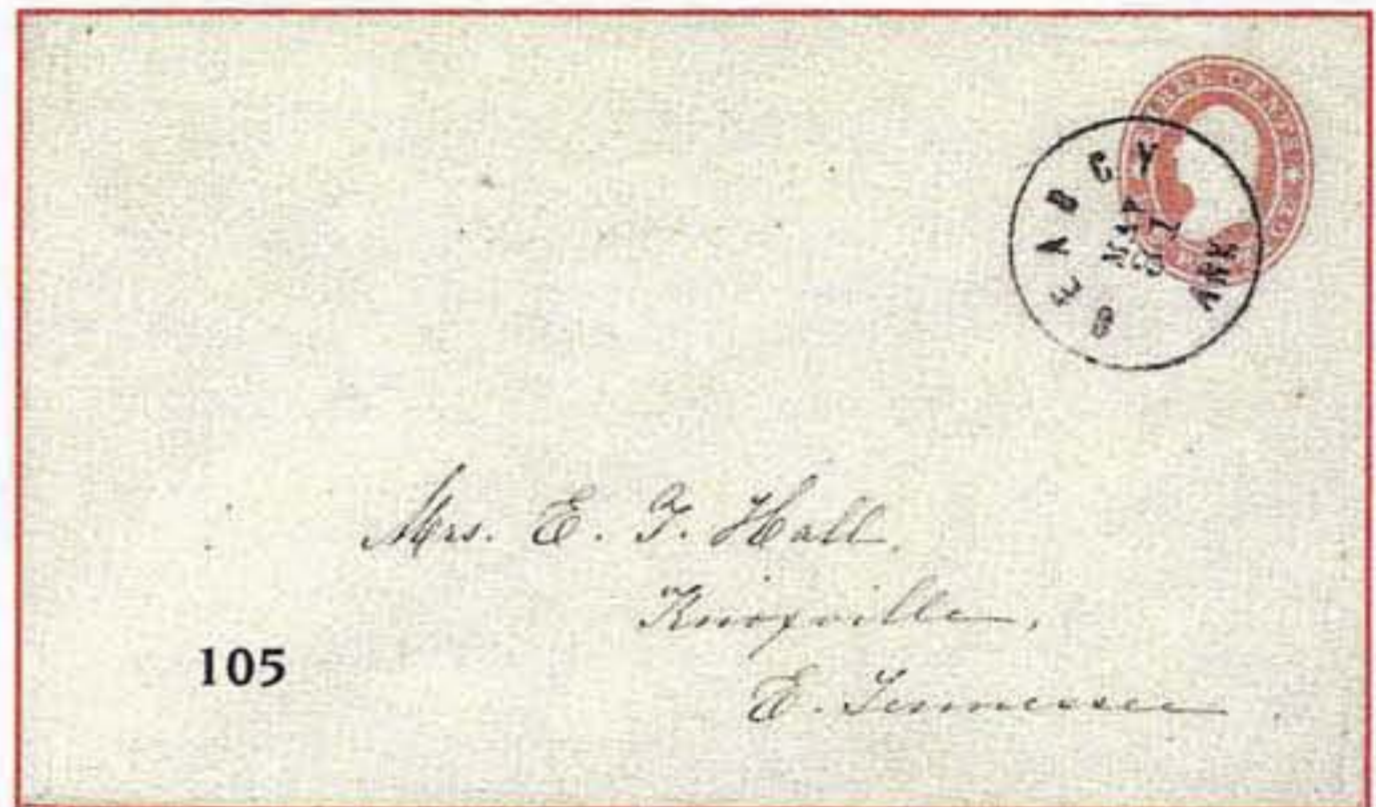 THREE CENTS
SEARCY
MAY
ARK
Mrs. E. F. Hall.
Knoxville,
E. Tennessee.
105